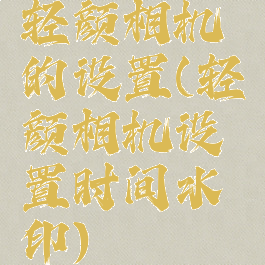 轻颜相机
的设置(轻
颜相机设
置时间水
印)